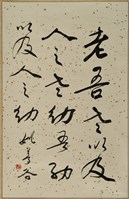 老吾老以及
人之老幼吾幼
以及人之幼